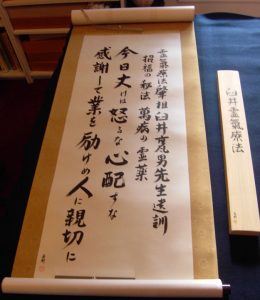 靈氣療法肇祖臼井甕男先生遺訓
招福の秘法 萬病の靈薬
今日丈けは 怒るな 心配すな
感謝して 業を励けめ 人に親切に
臼井靈氣療法